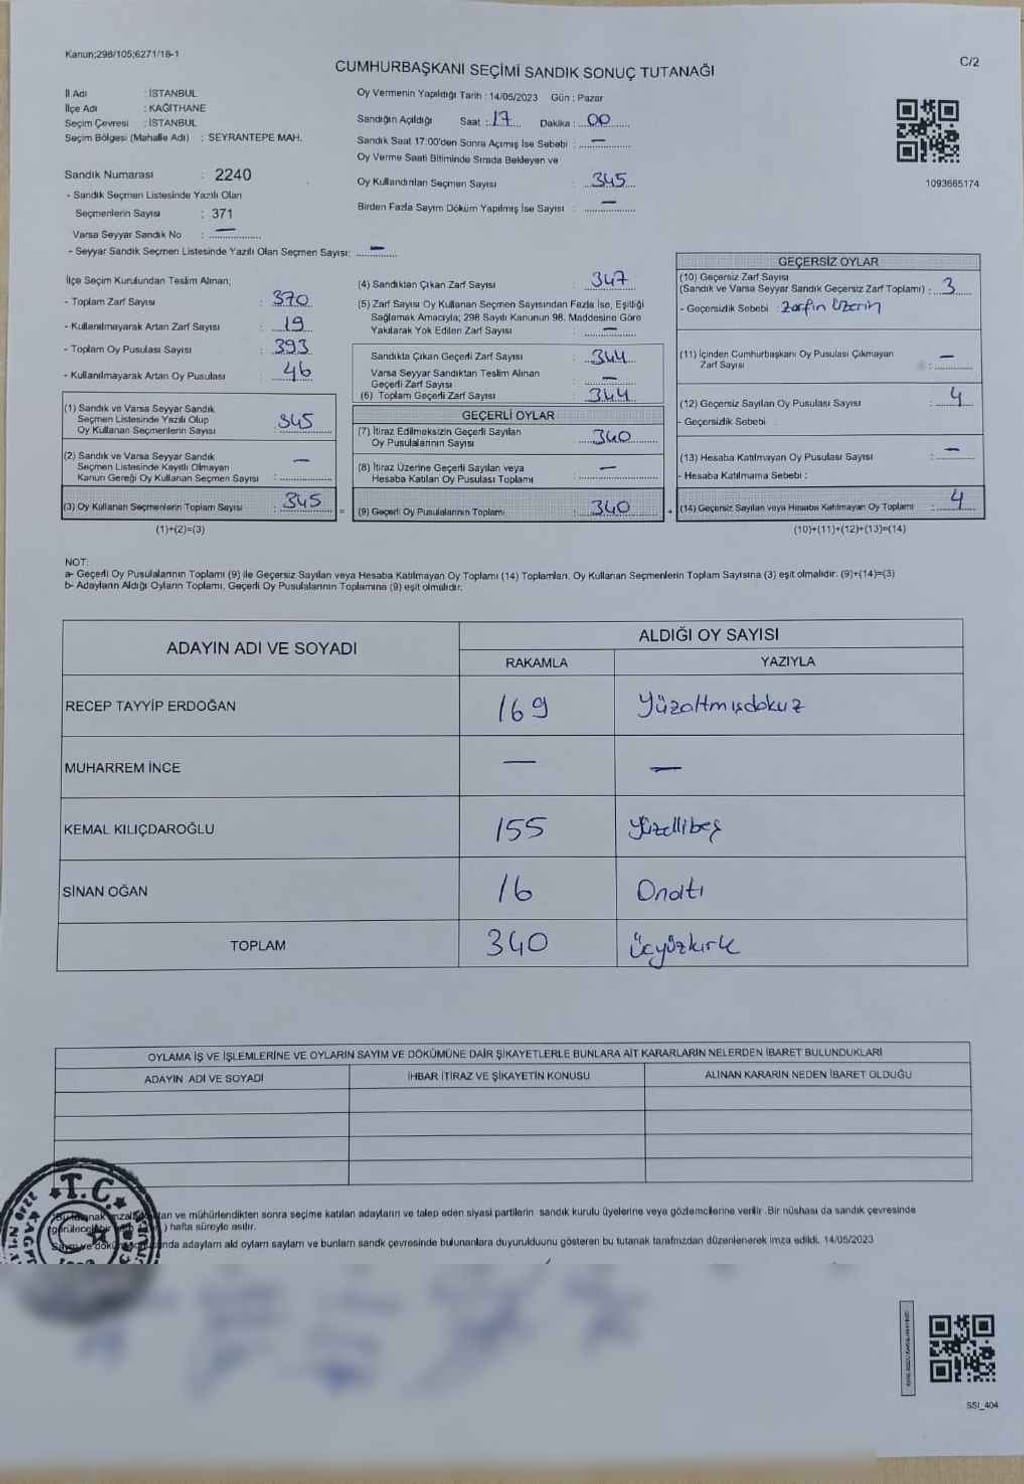 Kanun;298/105;6271/16-1
C/2
CUMHURBAŞKANI SEÇİMİ SANDIK SONUÇ TUTANAĞI
İl Adı : İSTANBUL
İlçe Adı : KAĞITHANE
Seçim Çevresi : İSTANBUL
Seçim Bölgesi (Mahalle Adı) : SEYRANTEPE MAH.
Sandık Numarası : 2240
- Sandık Seçmen Listesinde Yazılı Olan
Seçmenlerin Sayısı : 371
Varsa Seyyar Sandık No : —
- Seyyar Sandık Seçmen Listesinde Yazılı Olan Seçmen Sayısı: —
Oy Vermenin Yapıldığı Tarih : 14/05/2023 Gün : Pazar
Sandığın Açıldığı Saat : 17 Dakika : 00
Sandık Saat 17:00'den Sonra Açmış İse Sebebi : —
Oy Verme Saati Bitiminde Sırada Bekleyen ve
Oy Kullandırılan Seçmen Sayısı : 345
Birden Fazla Sayım Döküm Yapılmış İse Sayısı : —
1093665174
İlçe Seçim Kurulundan Teslim Alınan;
- Toplam Zarf Sayısı : 370
- Kullanılmayarak Artan Zarf Sayısı : 19
- Toplam Oy Pusulası Sayısı : 393
- Kullanılmayarak Artan Oy Pusulası : 46
(1) Sandık ve Varsa Seyyar Sandık
Seçmen Listesinde Yazılı Olup
Oy Kullanan Seçmenlerin Sayısı : 345
(2) Sandık ve Varsa Seyyar Sandık
Seçmen Listesinde Kayıtlı Olmayan
Kanun Gereği Oy Kullanan Seçmen Sayısı : —
(3) Oy Kullanan Seçmenlerin Toplam Sayısı : 345
(1)+(2)=(3)
(4) Sandıktan Çıkan Zarf Sayısı : 347
(5) Zarf Sayısı Oy Kullanan Seçmen Sayısından Fazla İse, Eşitliği
Sağlamak Amacıyla; 298 Sayılı Kanunun 98. Maddesine Göre
Yakılarak Yok Edilen Zarf Sayısı : —
Sandıkta Çıkan Geçerli Zarf Sayısı : 344
Varsa Seyyar Sandıktan Teslim Alınan
Geçerli Zarf Sayısı : —
(6) Toplam Geçerli Zarf Sayısı : 344
GEÇERLİ OYLAR
(7) İtiraz Edilmeksizin Geçerli Sayılan
Oy Pusulalarının Sayısı : 340
(8) İtiraz Üzerine Geçerli Sayılan veya
Hesaba Katılan Oy Pusulası Toplamı : —
(9) Geçerli Oy Pusulalarının Toplamı : 340
GEÇERSİZ OYLAR
(10) Geçersiz Zarf Sayısı
(Sandık ve Varsa Seyyar Sandık Geçersiz Zarf Toplamı) : 3
- Geçersizlik Sebebi : Zarfın Üzerin
(11) İçinden Cumhurbaşkanı Oy Pusulası Çıkmayan
Zarf Sayısı : —
(12) Geçersiz Sayılan Oy Pusulası Sayısı : 4
- Geçersizlik Sebebi :
(13) Hesaba Katılmayan Oy Pusulası Sayısı : —
- Hesaba Katılmama Sebebi :
(14) Geçersiz Sayılan veya Hesaba Katılmayan Oy Toplamı : 4
(10)+(11)+(12)+(13)=(14)
NOT:
a- Geçerli Oy Pusulalarının Toplamı (9) ile Geçersiz Sayılan veya Hesaba Katılmayan Oy Toplamı (14) Toplamları, Oy Kullanan Seçmenlerin Toplam Sayısına (3) eşit olmalıdır. (9)+(14)=(3)
b- Adayların Aldığı Oyların Toplamı, Geçerli Oy Pusulalarının Toplamına (9) eşit olmalıdır.
ADAYIN ADI VE SOYADI
ALDIĞI OY SAYISI
RAKAMLA YAZIYLA
RECEP TAYYİP ERDOĞAN 169 Yüzaltmışdokuz
MUHARREM İNCE — —
KEMAL KILIÇDAROĞLU 155 Yüzellibeş
SİNAN OĞAN 16 Onaltı
TOPLAM 340 Üçyüzkırk
OYLAMA İŞ VE İŞLEMLERİNE VE OYLARIN SAYIM VE DÖKÜMÜNE DAİR ŞİKAYETLERLE BUNLARA AİT KARARLARIN NELERDEN İBARET BULUNDUKLARI
ADAYIN ADI VE SOYADI İHBAR İTİRAZ VE ŞİKAYETİN KONUSU ALINAN KARARIN NEDEN İBARET OLDUĞU
T.C.
ve mühürlendikten sonra seçime katılan adayların ve talep eden siyasi partilerin sandık kurulu üyelerine veya gözlemcilerine verilir. Bir nüshası da sandık çevresinde
) hafta süreyle asılır.
adayların ald oyların sayların ve bunların sandk çevresinde bulunanlara duyurulduunu gösteren bu tutanak tarafmzdan düzenlenerek imza edildi. 14/05/2023
SSI_404